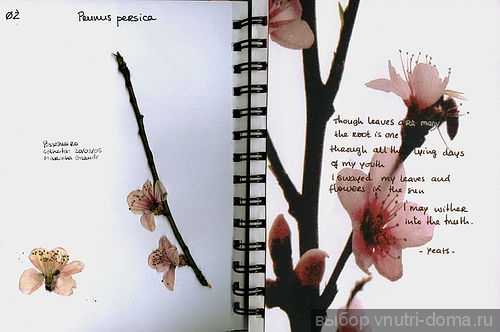 02
Prunus persica
Marinha Grande
Though leaves are many
the root is one
through all the lying days
of my youth
I swayed my leaves and
flowers in the sun
I may wither
into the truth.
- Yeats -
выбор vnutri-doma.ru